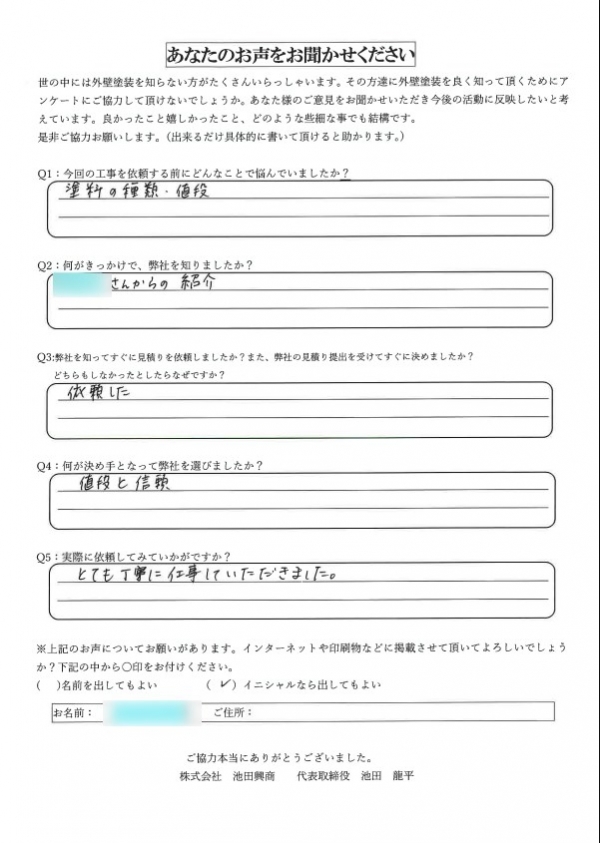 あなたのお声をお聞かせください
世の中には外壁塗装を知らない方がたくさんいらっしゃいます。その方達に外壁塗装を良く知って頂くためにア
ンケートにご協力して頂けないでしょうか。あなた様のご意見をお聞かせいただき今後の活動に反映したいと考
えています。良かったこと嬉しかったこと、どのような些細な事でも結構です。
是非ご協力お願いします。（出来るだけ具体的に書いて頂けると助かります。）
Q1：今回の工事を依頼する前にどんなことで悩んでいましたか？
塗料の種類・値段
Q2：何がきっかけで、弊社を知りましたか？
さんからの紹介
Q3:弊社を知ってすぐに見積りを依頼しましたか？また、弊社の見積り提出を受けてすぐに決めましたか？
どちらもしなかったとしたらなぜですか？
依頼した
Q4：何が決め手となって弊社を選びましたか？
値段と信頼
Q5：実際に依頼してみていかがですか？
とても丁寧に仕事していただきました。
※上記のお声についてお願いがあります。インターネットや印刷物などに掲載させて頂いてよろしいでしょう
か？下記の中から〇印をお付けください。
（　）名前を出してもよい　（✓）イニシャルなら出してもよい
お名前：　ご住所：
ご協力本当にありがとうございました。
株式会社　池田興商　代表取締役　池田　龍平